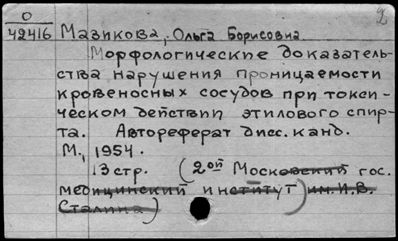 2
О
42416 Мазикова, Ольга Борисовна
Морфологические доказатель-
ства нарушения проницаемости
кровеносных сосудов при токси-
ческом действии этилового спир-
та. Автореферат дисс. канд.
М., 1954.
13 стр. (2ой Московский гос.
медицинский институт) им. И.В.
Сталина)